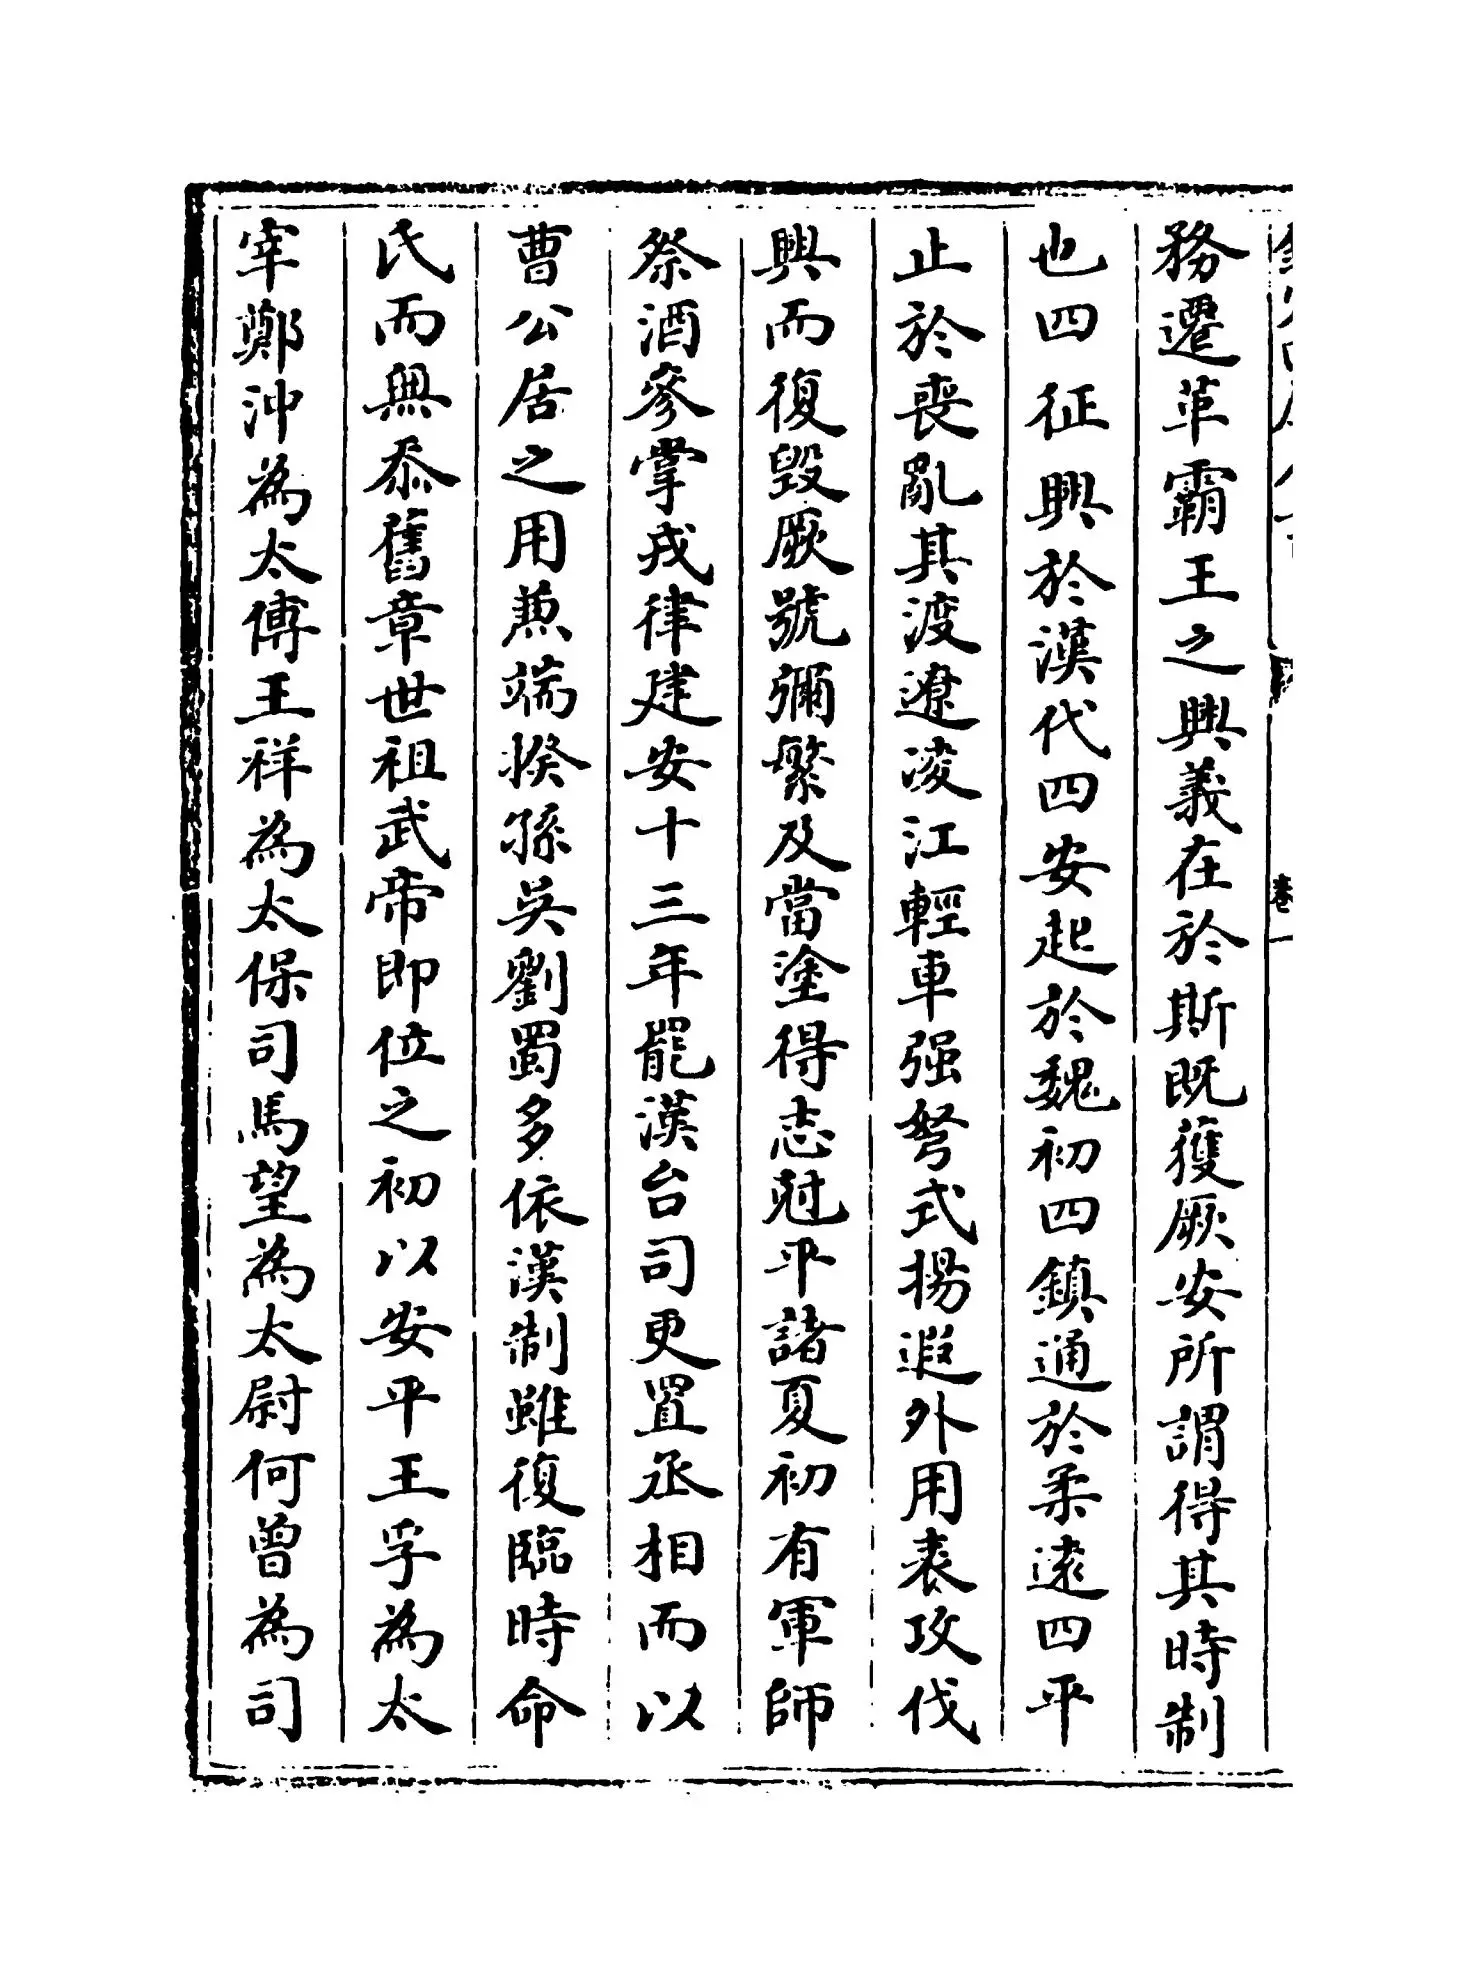 務遷革霸王之興義在於斯既獲厥安所謂得其時制
也四征興於漢代四安起於魏初四鎮通於柔逺四平
止於喪亂其渡遼凌江輕車强弩式揚遐外用表攻伐
興而復毀厥號彌繁及當塗得志尅平諸夏初有軍師
祭酒參掌戎律建安十三年罷漢台司更置丞相而以
曹公居之用兼端揆孫吳劉蜀多依漢制雖復臨時命
氏而無忝舊章世祖武帝即位之初以安平王孚為太
宰鄭沖為太傅王祥為太保司馬望為太尉何曾為司
卷一